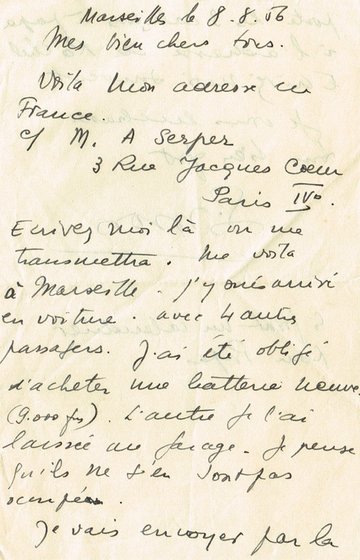 Marseilles le 8.8.56
Mes bien chers tous.
Voila mon adresse en
France.
c/ M. A Serper
3 Rue Jacques Cœur
Paris IVº.
Ecrivez moi là on me
transmettra. Me voila
à Marseille. j'y suis arrivé
en voiture. avec 4 autres
passagers. J'ai été obligé
d'acheter une batterie neuve
(9.000 frs). L'autre je l'ai
laissée au garage. Je pense
qu'ils ne s'en sont pas
occupés.
Je vais envoyer par la